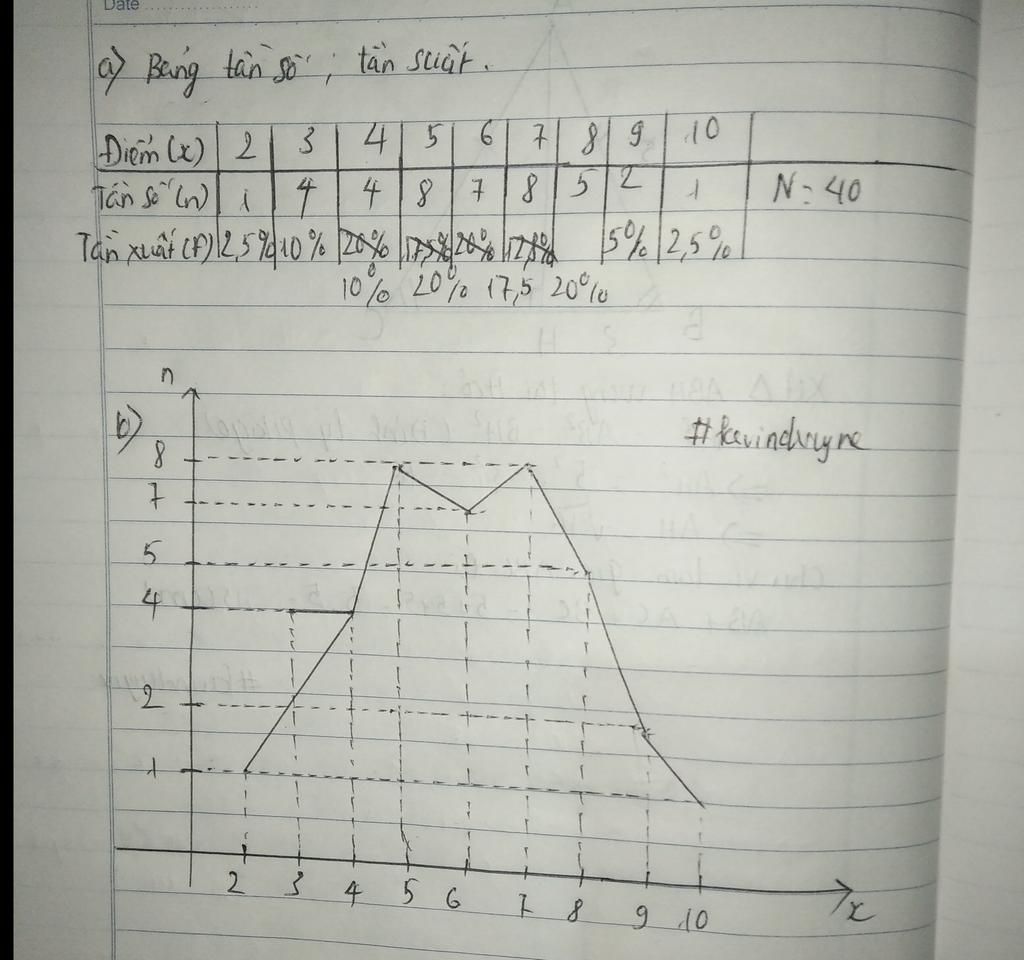 Date
a) Bảng tần số, tần suất.
Điểm (x) 2 3 4 5 6 7 8 9 10
Tần số (n) 1 4 4 8 7 8 5 2 1 N = 40
Tần xuất (f) 2,5% 10% 20% 17,5% 20% 12,5% 5% 2,5%
10% 20% 17,5 20%
n
b)
#kevindwyne
8
7
5
4
2
1
2 3 4 5 6 7 8 9 10
x